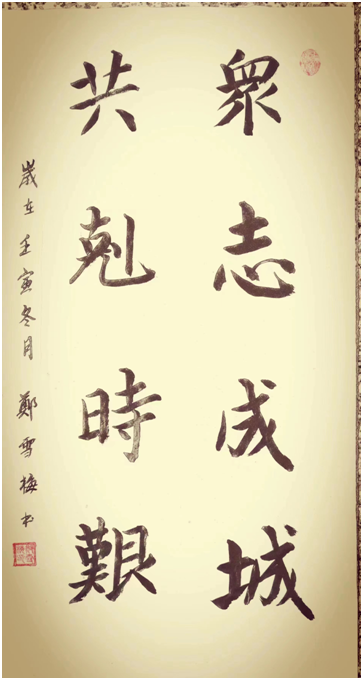 眾志成城
共剋時艱
歲在壬寅冬月鄭雪梅书